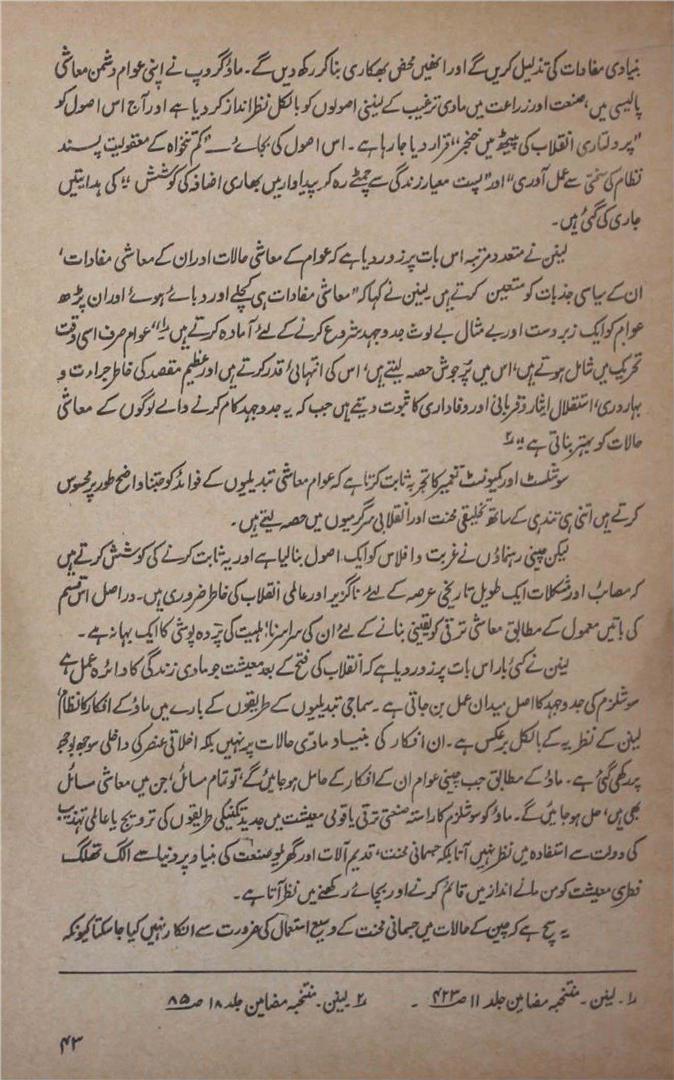 بنیادی مفادات کی تذلیل کریں گے اور انھیں محض بھکاری بنا کر رکھ دیں گے۔ ماؤ گروپ نے اپنی عوام دشمن معاشی
پالیسی میں، صنعت اور زراعت میں مادی ترغیب کے لیننی اصولوں کو بالکل نظر انداز کر دیا ہے اور آج اس اصول کو
"پرولتاری انقلاب کی پیٹھ میں خنجر" قرار دیا جا رہا ہے۔ اس اصول کی بجائے ــ "کم تنخواہ کے معقولیت پسند
نظام کی سختی سے عمل آوری" اور "پست معیار زندگی سے چمٹے رہ کر پیداوار میں بھاری اضافہ کی کوشش" کی ہدایتیں
جاری کی گئی ہیں۔
لینن نے متعدد مرتبہ اس بات پر زور دیا ہے کہ عوام کے معاشی حالات اور ان کے معاشی مفادات،
ان کے سیاسی جذبات کو متعین کرتے ہیں۔ لینن نے کہا کہ "معاشی مفادات ہی کچلے اور دبائے ہوئے اور ان پڑھ
عوام کو ایک زبردست اور بے مثال بے لوث جدوجہد شروع کرنے کے لئے آمادہ کرتے ہیں"؎۱ "عوام صرف اسی وقت
تحریک میں شامل ہوتے ہیں، اس میں پُرجوش حصہ لیتے ہیں، اس کی انتہائی قدر کرتے ہیں اور عظیم مقصد کی خاطر جرات و
بہادری، استقلال ایثار و قربانی اور وفاداری کا ثبوت دیتے ہیں جب کہ یہ جدوجہد کام کرنے والے لوگوں کے معاشی
حالات کو بہتر بناتی ہے"؎۲
سوشلسٹ اور کمیونسٹ تعمیر کا تجربہ ثابت کرتا ہے کہ عوام معاشی تبدیلیوں کے فوائد کو جتنا واضح طور پر محسوس
کرتے ہیں اتنی ہی تندہی کے ساتھ تخلیقی محنت اور انقلابی سرگرمیوں میں حصہ لیتے ہیں۔
لیکن چینی رہنماؤں نے غربت و افلاس کو ایک اصول بنا لیا ہے اور یہ ثابت کرنے کی کوشش کرتے ہیں
کہ مصائب اور مشکلات ایک طویل تاریخی عرصہ کے لئے ناگزیر اور عالمی انقلاب کی خاطر ضروری ہیں۔ در اصل اس قسم
کی باتیں معمول کے مطابق معاشی ترقی کو یقینی بنانے کے لئے ان کی سراسر نااہلیت کی پردہ پوشی کا ایک بہانہ ہے۔
لینن نے کئی بار اس بات پر زور دیا ہے کہ انقلاب کی فتح کے بعد معیشت جو مادی زندگی کا دائرہ عمل ہے
سوشلزم کی جدوجہد کا اصل میدان عمل بن جاتی ہے۔ سماجی تبدیلیوں کے طریقوں کے بارے میں ماؤ کے افکار کا نظام
لینن کے نظریہ کے بالکل برعکس ہے۔ ان افکار کی بنیاد مادّی حالات پر نہیں بلکہ اخلاقی عنصر کی داخلی سوجھ بوجھ
پر رکھی گئی ہے۔ ماؤ کے مطابق جب چینی عوام ان کے افکار کے حامل ہو جائیں گے، تو تمام مسائل، جن میں معاشی مسائل
بھی ہیں، حل ہو جائیں گے۔ ماؤ کو سوشلزم کا راستہ صنعتی ترقی یا قومی معیشت میں جدید تکنیکی طریقوں کی ترویج یا عالمی تہذیب
کی دولت سے استفادہ میں نظر نہیں آتا بلکہ جسمانی محنت، قدیم آلات اور گھریلو صنعت کی بنیاد پر دنیا سے الگ تھلگ
فطری معیشت کو من مانے انداز میں قائم کرنے اور بچائے رکھنے میں نظر آتا ہے۔
یہ سچ ہے کہ چین کے حالات میں جسمانی محنت کے وسیع استعمال کی ضرورت سے انکار نہیں کیا جا سکتا کیونکہ
؎۱۔ لینن۔ منتخبہ مضامین جلد ۱۱ ص ۴۲۳ ۔ ؎۲ لینن۔ منتخبہ مضامین جلد ۱۸ ص ۸۵
۴۳